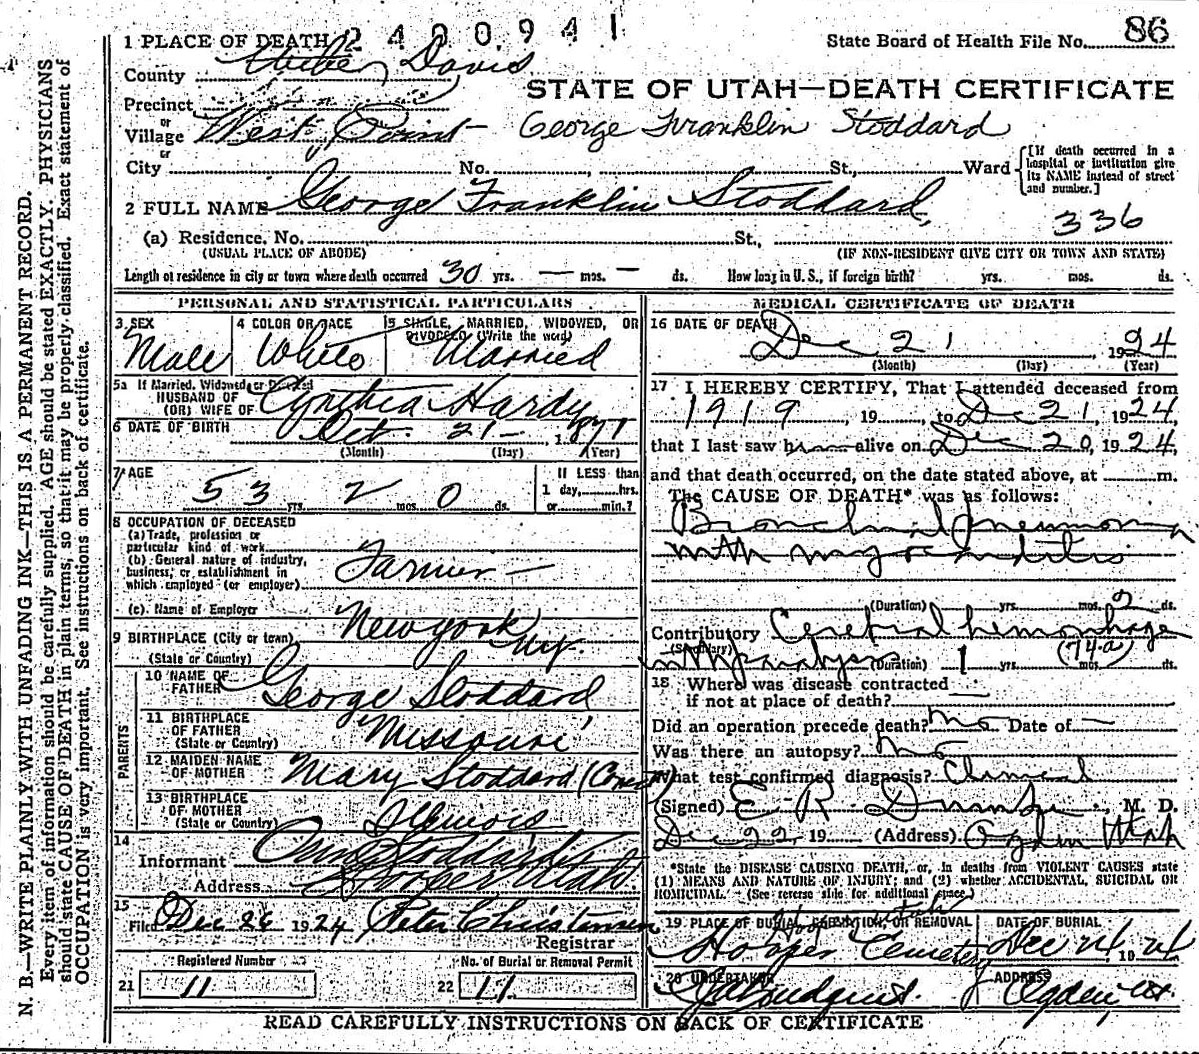 2400941
86
1 PLACE OF DEATH
State Board of Health File No.
County Weber Davis
STATE OF UTAH—DEATH CERTIFICATE
Precinct
or
Village West Point
George Franklin Stoddard
or
City No. , St., Ward
[If death occurred in a hospital or institution give its NAME instead of street and number.]
2 FULL NAME George Franklin Stoddard,
336
(a) Residence. No. St.,
(USUAL PLACE OF ABODE) (IF NON-RESIDENT GIVE CITY OR TOWN AND STATE)
Length of residence in city or town where death occurred 30 yrs. — mos. — ds. How long in U. S., if foreign birth? yrs. mos. ds.
PERSONAL AND STATISTICAL PARTICULARS
3 SEX Male
4 COLOR OR RACE White
5 SINGLE, MARRIED, WIDOWED, OR DIVORCED (Write the word) Married
5a If Married, Widowed or Divorced
HUSBAND OF
(OR) WIFE OF Cynthia Hardy
6 DATE OF BIRTH Oct. 21— , 1871
(Month) (Day) (Year)
7 AGE 53 yrs. 2 mos. 0 ds.
If LESS than
1 day, hrs.
or min.?
8 OCCUPATION OF DECEASED
(a) Trade, profession or
particular kind of work
(b) General nature of industry,
business, or establishment in
which employed (or employer) Farmer —
(c). Name of Employer
9 BIRTHPLACE (City or town) New york
(State or Country) N.y.
PARENTS
10 NAME OF FATHER George Stoddard
11 BIRTHPLACE OF FATHER (State or Country) Missouri
12 MAIDEN NAME OF MOTHER Mary Stoddard
13 BIRTHPLACE OF MOTHER (State or Country) Illinois
14 Informant
Address Hooper Utah
15 Filed Dec 26 1924 Peter Christensen
Registrar
Registered Number No. of Burial or Removal Permit
21 11 22 11
MEDICAL CERTIFICATE OF DEATH
16 DATE OF DEATH Dec 21 1924
(Month) (Day) (Year)
17 I HEREBY CERTIFY, That I attended deceased from
1919, 19 , to Dec 21, 1924,
that I last saw him alive on Dec 20, 1924,
and that death occurred, on the date stated above, at m.
The CAUSE OF DEATH* was as follows:
Bronchial pneumonia
with myocarditis
(Duration) yrs. mos. 2 ds.
Contributory Cerebral hemorrhage
(Secondary) with paralysis (Duration) 1 yrs. (74-a) mos. ds.
18 Where was disease contracted
if not at place of death?
Did an operation precede death? no Date of —
Was there an autopsy? no
What test confirmed diagnosis? Clinical
(Signed) E R , M. D.
Dec 22, 19 (Address) Ogden Utah
*State the DISEASE CAUSING DEATH, or, in deaths from VIOLENT CAUSES state
(1) MEANS AND NATURE OF INJURY; and (2) whether ACCIDENTAL, SUICIDAL OR
HOMICIDAL. — (See reverse side for additional space.)
19 PLACE OF BURIAL, CREMATION, OR REMOVAL DATE OF BURIAL
Hooper Cemetery Dec 24 1924
20 UNDERTAKER ADDRESS
Ogden, Ut.
READ CAREFULLY INSTRUCTIONS ON BACK OF CERTIFICATE
N. B.—WRITE PLAINLY WITH UNFADING INK—THIS IS A PERMANENT RECORD.
Every item of information should be carefully supplied. AGE should be stated EXACTLY. PHYSICIANS
should state CAUSE OF DEATH in plain terms, so that it may be properly classified. Exact statement of
OCCUPATION is very important. See instructions on back of certificate.